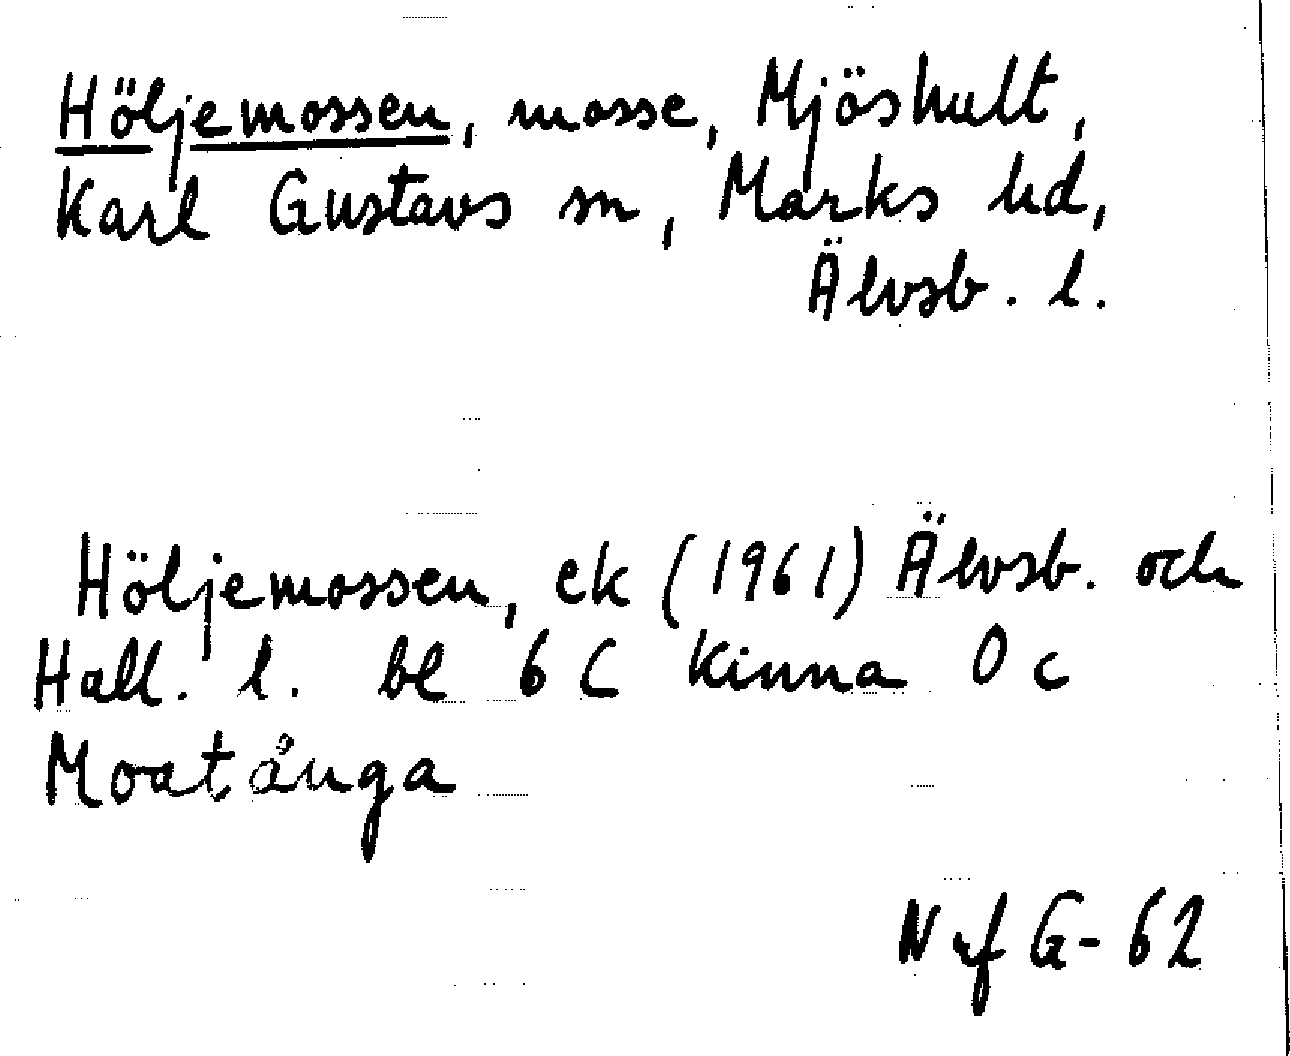 Höljemossen, mosse, Mjöshult,
Karl Gustavs sn, Marks hd,
Älvsb. l.
Höljemossen, ek (1961) Älvsb. och
Hall. l. bl 6 C Kinna 0 c
Moatånga
Nrf G-62